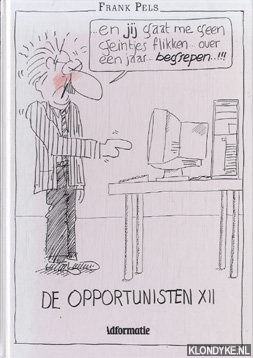 FRANK PELS
..en jij gaat me geen
geintjes flikken.. over
een jaar... begrepen..!!!
DE OPPORTUNISTEN XII
idformatie
KLONDYKE.NL